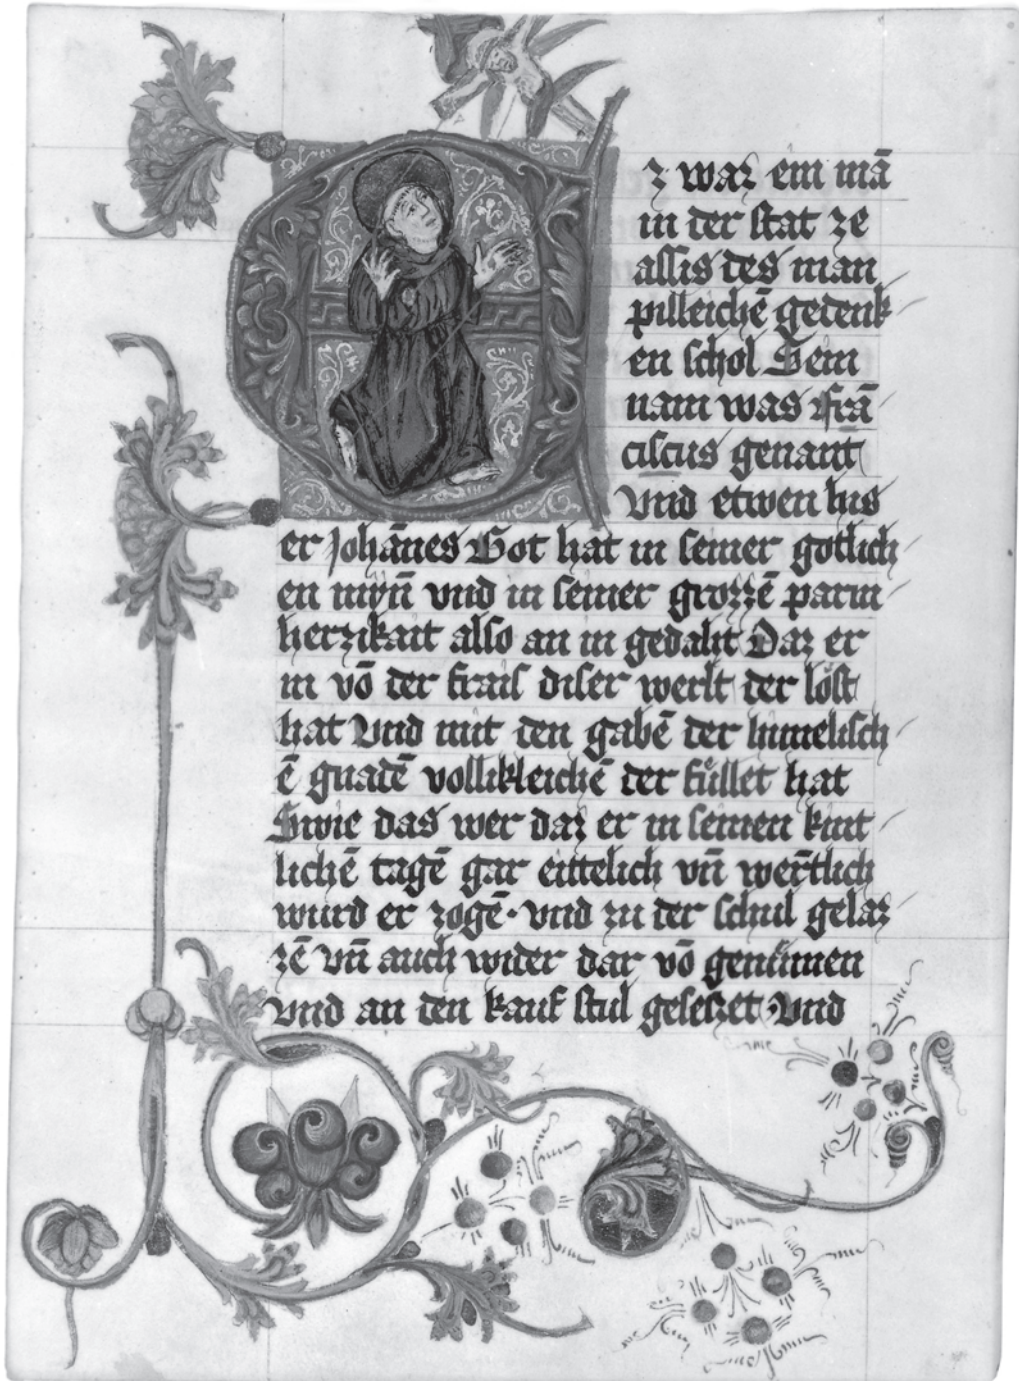 Ez waz ein mā
in der stat ze
assis des man
pilleichē gedenk
en schol Sein
nam was frā
ciscus genant
Vnd etwen his
er Johānes Got hat in seiner gotlich
en mȳn̄ vnd in seiner grozzē parm
herzikait also an in gedaht Daz er
in vō der frais diser werlt der löst
hat Vnd mit den gabē der himelisch
ē gnadē vollikleichē der füllet hat
Swie das wer daz er in seinen kint
lichē tagē gar eittelich vn̄ wer̄tlich
wurd er zogē · vnd zu der schul gelaz
zē vn̄ auch wider dar vō genümen
vnd an den kauf stul geseczet · Vnd